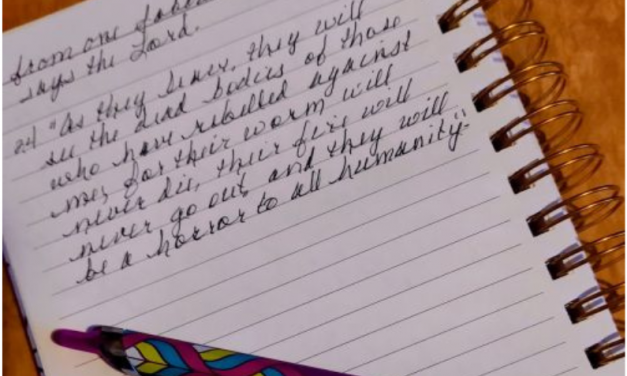 from one
says the Lord.
24 "As they leave, they will
see the dead bodies of those
who have rebelled against
me, for their worm will
never die, their fire will
never go out, and they will
be a horror to all humanity."